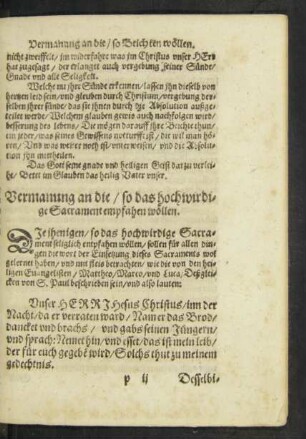 Vermanung an die / so Beichten wöllen.
nicht zweiffelt / im widerfahre was jm Christus vnser HErr
hat zugesagt / der erlanget auch vergebung seiner Sünde /
Gnade vnd alle Seligkeit.
Welche nu jhre Sünde erkennen / lassen jhn dieselb von
hertzen leid sein / vnd gleuben durch Christum / vergebung der-
selben jhrer sünde / das sie jhnen durch die Absolution außge-
teilet werde / Welchem glauben gewis auch nachfolgen wird
besserung des Lebens / Die mögen darauff jhre Beichte thun /
ein jeder / was seines Gewissens notturfft ist / der wil man hö-
ren / Vnd was were noch ist / vnterweisen / vnd die Absolu-
tion jhn mitteilen.
Das Gott seine gnade vnd heiligen Geist darzu verlei-
he / Betet im Glauben das heilig Vater vnser.
Vermanung an die / so das hochwirdi-
ge Sacrament empfahen wöllen.
DIejenigen / so das hochwirdige Sacra-
ment seliglich empfahen wöllen / sollen für allen din-
gen die wort der Einsetzung dieses Sacraments wol
gelernet haben / vnd mit fleis betrachten / wie die von den hei-
ligen Euangelisten / Mattheo / Marco / vnd Luca / Deßglei-
chen von S. Paul beschrieben sein / vnd also lauten:
Vnser HERR JHesus Christus / inn der
Nacht / da er verraten ward / Namer das Brod /
dancket vnd brachs / vnd gabs seinen Jüngern /
vnd sprach: Nemet hin / vnd esset / das ist mein leib /
der für euch gegebē wird / Solchs thut zu meinem
gedechtnis.
p ij Desselbi-